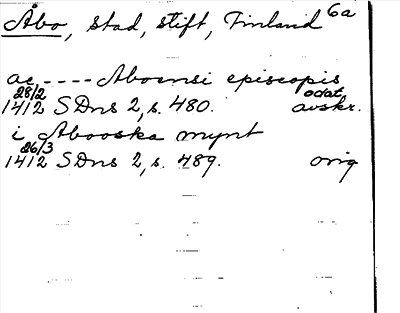 Åbo, stad, stift, Finland 6a
ac ---- Aboensi episcopis
28/2 odat.
1412 SDns 2, s. 480. avskr.
i Abooska mynt
26/3
1412 SDns 2, s. 489. orig